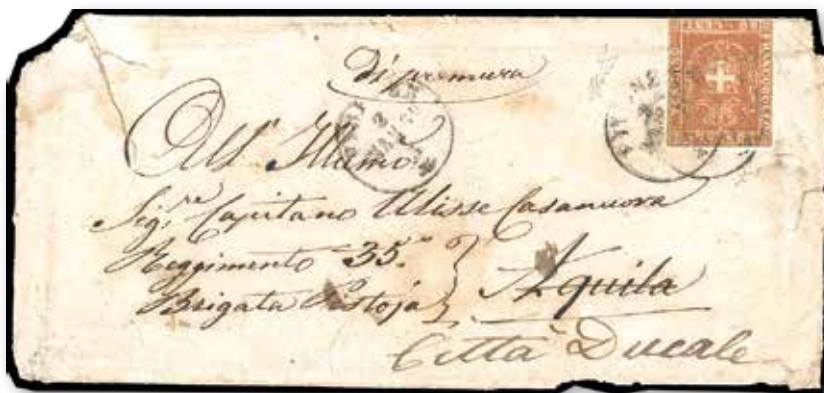 di premura
All' Illmo
Sig.re Capitano Ulisse Casanuova
Reggimento 35.°
Brigata Pistoja
Aquila
Città Ducale